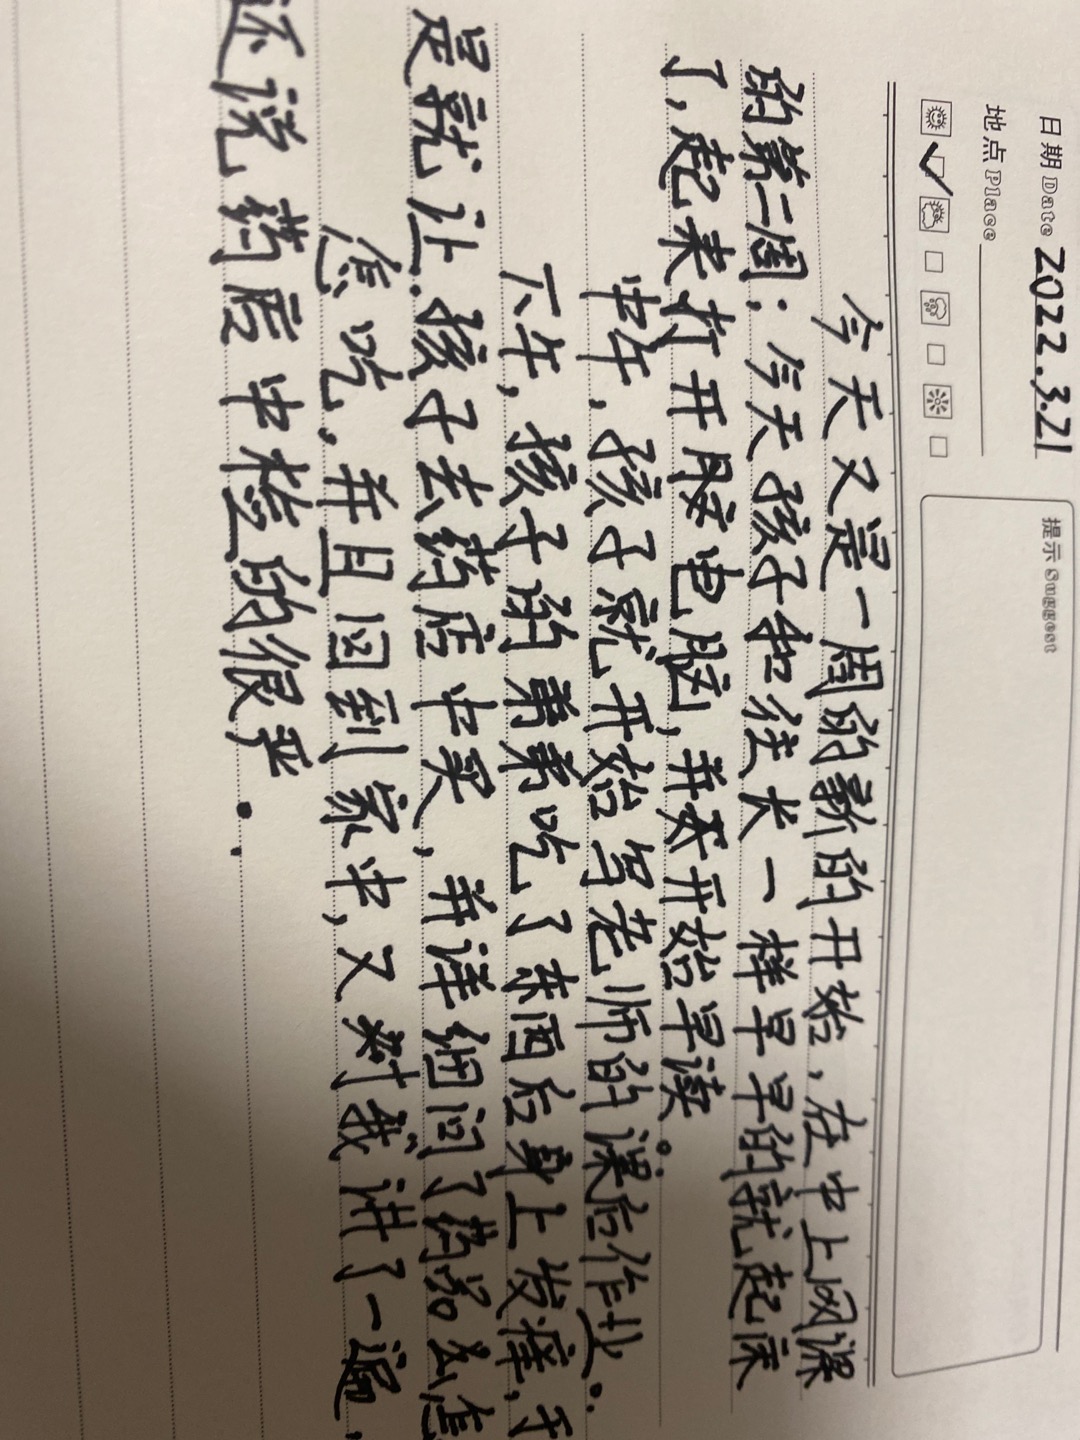 日期 Date 2022.3.21
地点 Place
提示 Suggest
今天又是一周的新的开始,在中上网课
的第二周;今天孩子和往长一样早早的就起床
了,起来打开脑电脑,并开始早读。
中午,孩子就开始写老师的课后作业。
下午,孩子的弟弟吃了东西后身上发痒,于
是就让孩子去药店中买,并详细问了药怎么
怎吃,并且回到家中,又对我讲了一遍,
还说药店中检的很严.